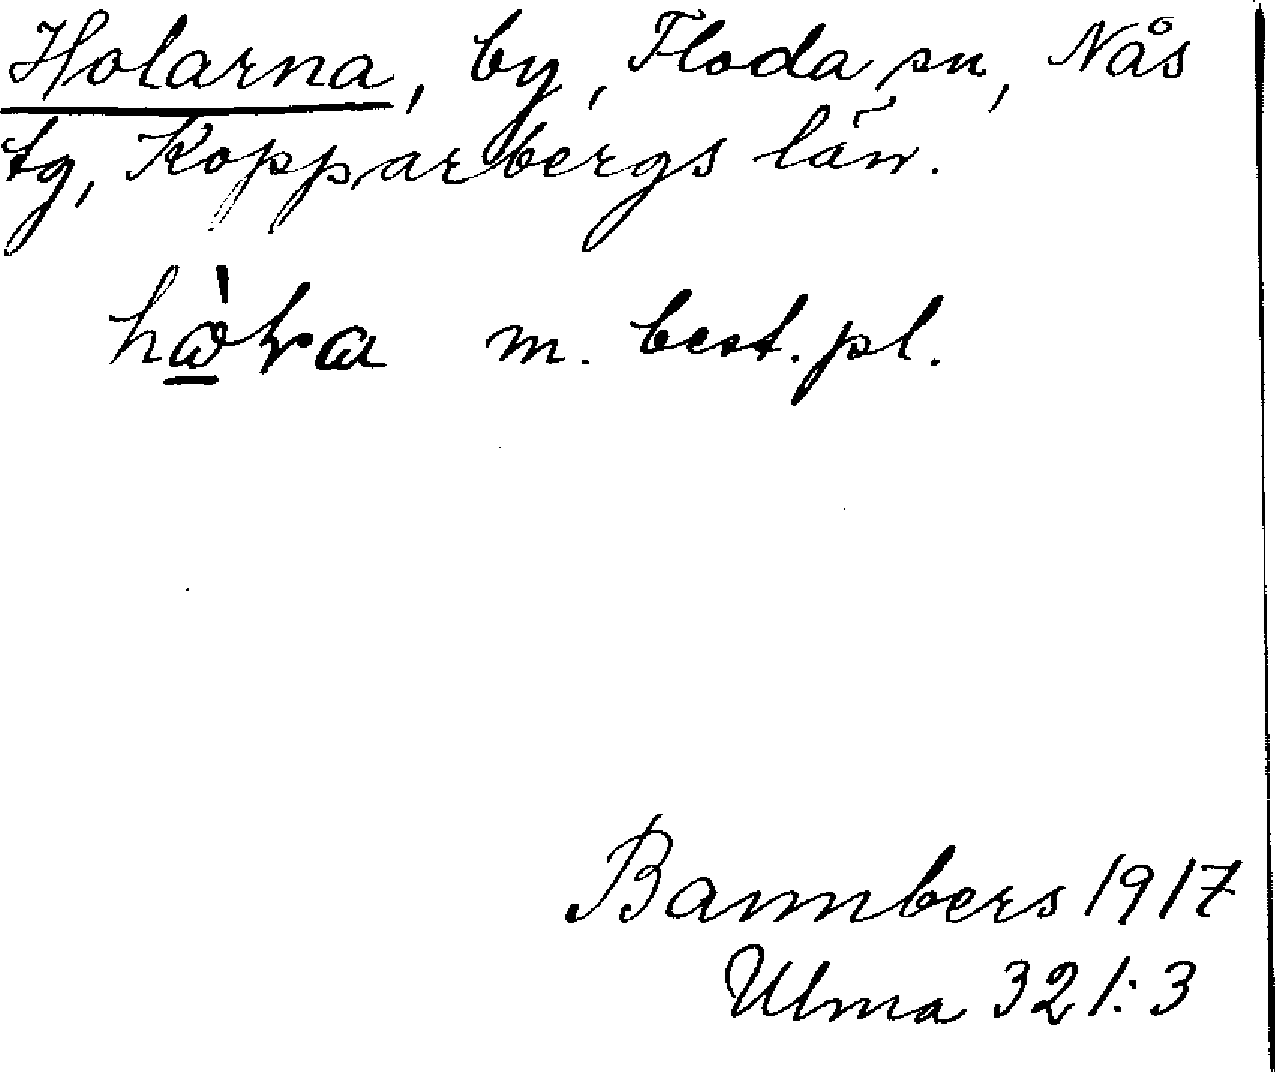 Holarna, by, Floda sn, Nås
tg, Kopparbergs län.
m. best. pl.
Bannbers 1917
Ulma 321:3